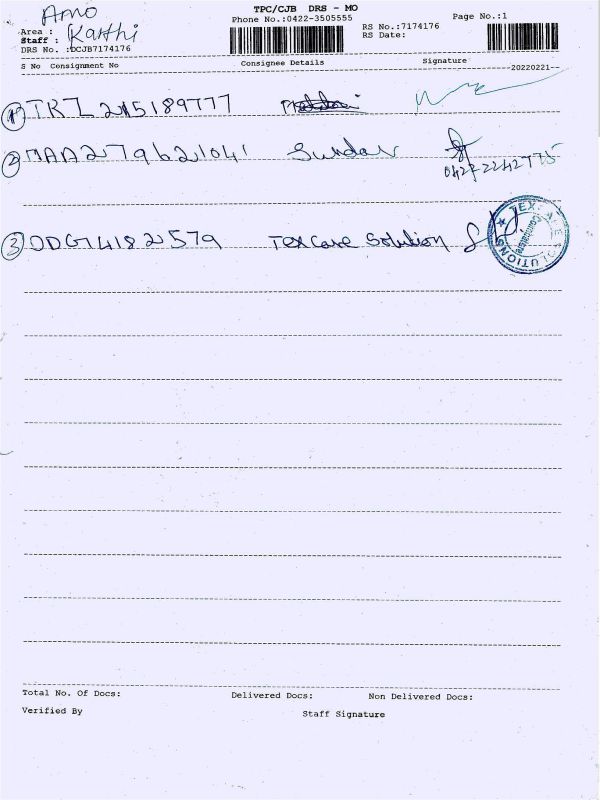 TPC/CJB DRS - MO
Phone No.:0422-3505555
Page No.:1
RS No.:7174176
RS Date:
Amo
Area :
Staff : Karthi
DRS No. :DCJB7174176
S No Consignment No Consignee Details Signature
20220221
1 TKZ 215189777
2 MAA279621041 Sundar
0422 2242775
3 ODG14182579 Texcare Solution
TEXCARE SOLUTIONS
Total No. Of Docs: Delivered Docs: Non Delivered Docs:
Verified By Staff Signature